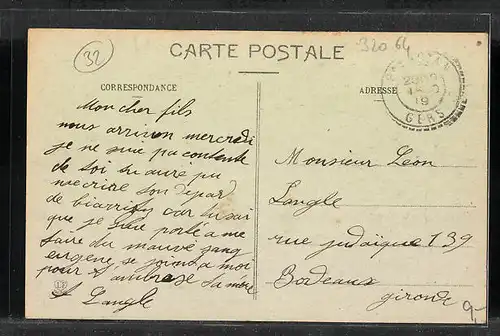 32
320 64
CARTE POSTALE
CORRESPONDANCE
ADRESSE
GERS
19
Mon cher fils
nous arrivon mercredi
je ne suie pa contente
de toi tu aure pu
mecrire ton depar
de biarritz car tu sai
que je suie porte a me
faire du mauvé sang
eugene se joint a moi
pour t ambrase ta mère
L Langle
Monsieur Léon
Langle
rue judaïque 139
Bordeaux
gironde
9,-